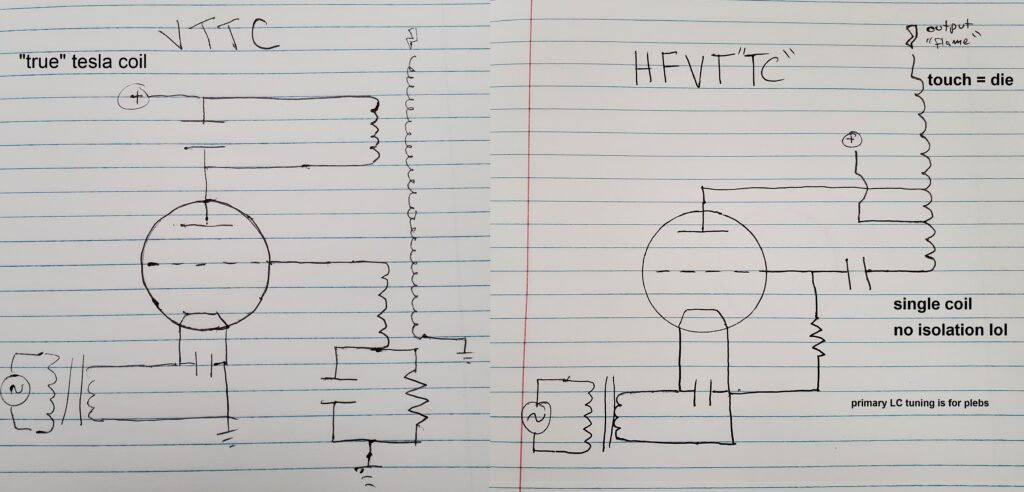 VTTC
"true" tesla coil
+
HFVT"TC"
output
"flame"
touch = die
+
single coil
no isolation lol
primary LC tuning is for plebs